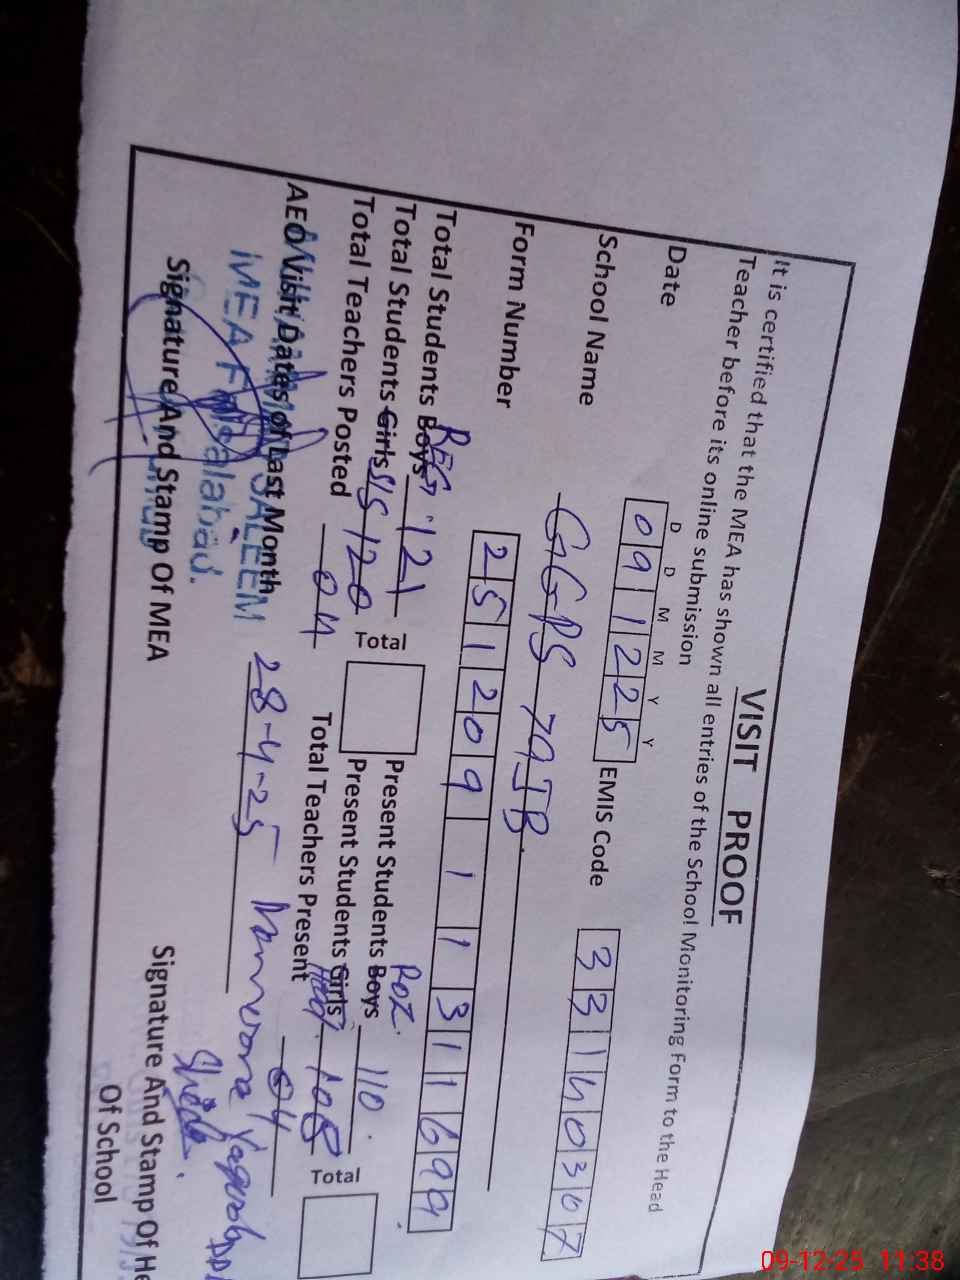 VISIT PROOF
It is certified that the MEA has shown all entries of the School Monitoring Form to the Head
Teacher before its online submission
D D M M Y Y
Date 091225 EMIS Code 33140307
School Name GGPS 79JB.
Form Number 25120911131699
Total Students Boys REG 121 Present Students Boys Roz. 110.
Total Students Girls SIS 120 Total Present Students Girls Head 108 Total
Total Teachers Posted 04 Total Teachers Present 04
AEO Visit Dates of Last Month 28-4-25
SALEEM
MEA Faisalabad.
Signature And Stamp Of MEA
Signature And Stamp Of He
Of School
09-12-25 11:38